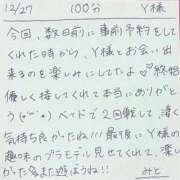 12/27 100分 Y様
今回、数日前に事前予約をして
くれた時から、Y様とお会い出
来るのを楽しみにしてたよ♡終始
優しく接してくれて本当にありがと
う(*^^*) ベッドで2回戦して、凄く
気持ち良かったね!!!最後に、Y様の
趣味のプラモデル見せてくれて、楽し
かったなまた遊ぼうね!! みと